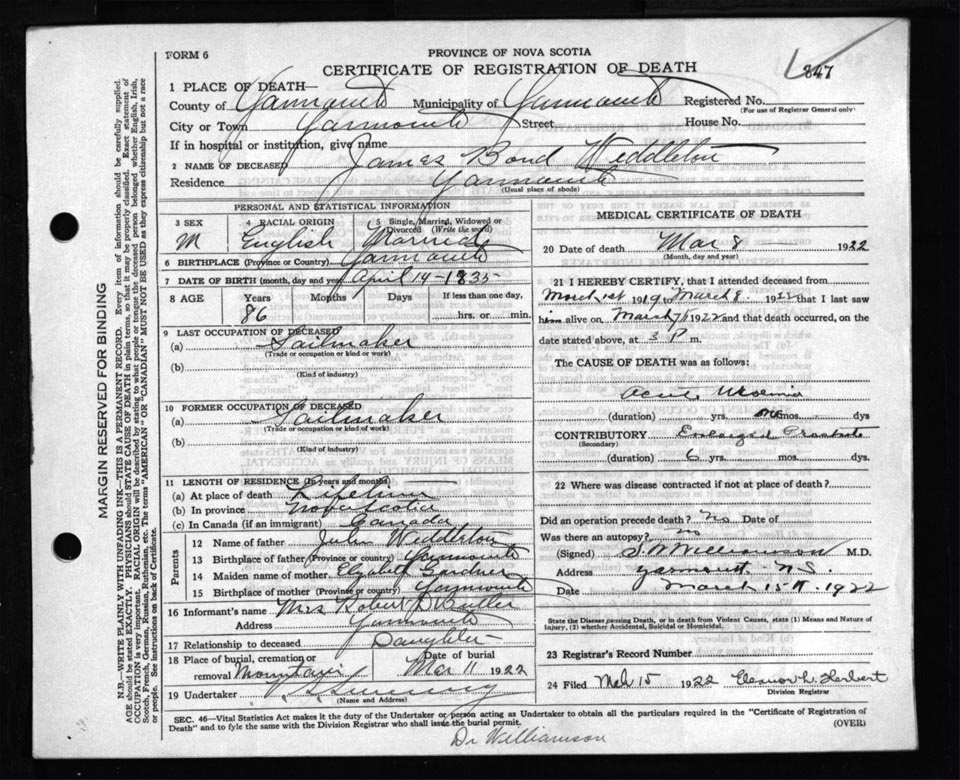 FORM 6
PROVINCE OF NOVA SCOTIA
CERTIFICATE OF REGISTRATION OF DEATH
847
1 PLACE OF DEATH—
County of Yarmouth Municipality of Yarmouth Registered No.
(For use of Registrar General only)
City or Town Yarmouth Street House No.
If in hospital or institution, give name
2 NAME OF DECEASED James Bond Weddleton
Residence Yarmouth
(Usual place of abode)
PERSONAL AND STATISTICAL INFORMATION
3 SEX 4 RACIAL ORIGIN 5 Single, Married, Widowed or
Divorced (Write the word)
M English Married
6 BIRTHPLACE (Province or Country) Yarmouth
7 DATE OF BIRTH (month, day and year) April 14-1835
8 AGE Years Months Days If less than one day,
86 hrs. or min.
9 LAST OCCUPATION OF DECEASED
(a) Sailmaker
(Trade or occupation or kind of work)
(b)
(Kind of industry)
10 FORMER OCCUPATION OF DECEASED
(a) Sailmaker
(Trade or occupation or kind of work)
(b)
(Kind of industry)
11 LENGTH OF RESIDENCE (In years and months)
(a) At place of death Lifetime
(b) In province Nova Scotia
(c) In Canada (if an immigrant) Canada
Parents
12 Name of father Weddleton
13 Birthplace of father (Province or country) Yarmouth
14 Maiden name of mother Elizabeth Gardner
15 Birthplace of mother (Province or country) Yarmouth
16 Informant's name Mrs Robert
Address Yarmouth
17 Relationship to deceased Daughter
18 Place of burial, cremation or Date of burial
removal Mountain Mar 11 1922
19 Undertaker
(Name and Address)
MEDICAL CERTIFICATE OF DEATH
20 Date of death Mar 8 1922
(Month, day and year)
21 I HEREBY CERTIFY, that I attended deceased from
March 1st 1919 to March 8 1922 that I last saw
him alive on March 7th 1922 and that death occurred, on the
date stated above, at 3 P m.
The CAUSE OF DEATH was as follows:
Acute Uraemia
(duration) yrs. one mos. dys
CONTRIBUTORY Enlarged Prostate
(Secondary)
(duration) 6 yrs. mos. dys
22 Where was disease contracted if not at place of death?
Did an operation precede death? No Date of
Was there an autopsy? no
(Signed) Williamson M.D.
Address Yarmouth N.S.
Date March 15th 1922
State the Disease causing Death, or in death from Violent Causes, state (1) Means and Nature of
Injury, (2) whether Accidental, Suicidal or Homicidal.
23 Registrar's Record Number
24 Filed Mch 15 1922 Eleanor L. Herbert
Division Registrar
SEC. 46—Vital Statistics Act makes it the duty of the Undertaker or person acting as Undertaker to obtain all the particulars required in the "Certificate of Registration of
Death" and to fyle the same with the Division Registrar who shall issue the burial permit.
(OVER)
Dr Williamson
MARGIN RESERVED FOR BINDING
N.B.—WRITE PLAINLY WITH UNFADING INK—THIS IS A PERMANENT RECORD. Every item of information should be carefully supplied.
AGE should be stated EXACTLY. PHYSICIANS should STATE CAUSE OF DEATH in plain terms, so that it may be properly classified. Exact statement of
OCCUPATION is very important. RACIAL ORIGIN will be described by stating to what people or tongue the deceased person belonged whether English, Irish,
Scotch, French, German, Russian, Ruthenian, etc. The terms "AMERICAN" OR "CANADIAN" MUST NOT BE USED as they express citizenship but not a race
or people. See instructions on back of Certificate.